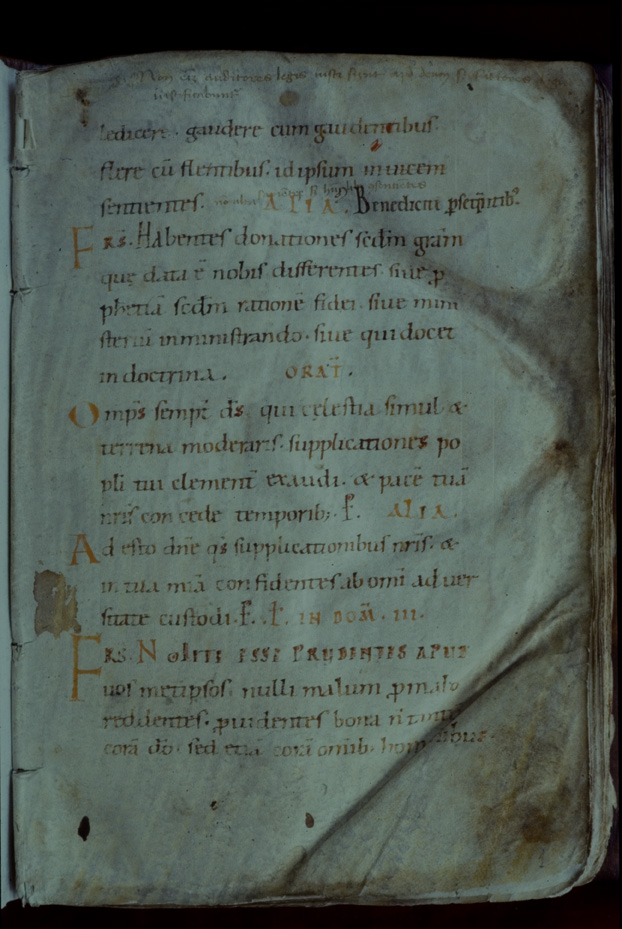 Non eni auditores legis iusti sunt apud deum sed factores legis
iustificabuntur
ledicere. gaudere cum gaudentibus.
flere cū flentibus. idipsum inuicem
sentientes. ALIA. Benedicite ꝑseq̄ntib;
FRS. Habentes donationes sedm̄ gram̄
quę data ē nobis differentes. siue ꝓ
phetiā sedm̄ rationē fidei. siue mini
steriū in ministrando. siue qui docet
in doctrina. ORAT̄.
Omp̄s sempt̄ d̄s. qui cęlestia simul &
terrena moderaris. supplicationes po
pli tui clement̄ exaudi. & pacē tuā
nr̄is concede temporib; P. ALIA.
Adesto dn̄e q̄s supplicationibus nr̄is. &
in tua mīa confidentes ab omī aduer
sitate custodi. P. P. IN DOM̄. III.
FRS. NOLITE ESSE PRUDENTES APUD
uos metipsos. nulli malum ꝓ malo
reddentes. ꝓuidentes bona n̄ tantū
corā dō. sed etiā corā omib. hominibus.